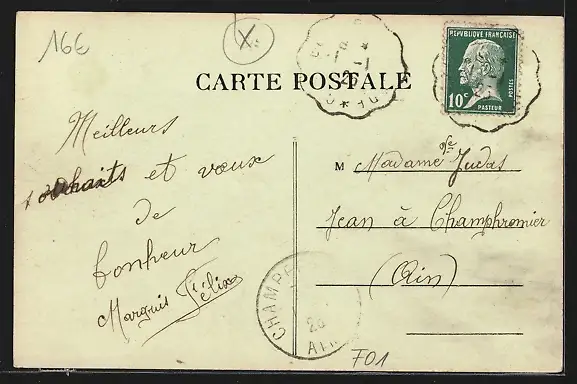 16€
X.
CARTE POSTALE
REPVBLIQUE FRANÇAISE
POSTES
10c
PASTEUR
Meilleurs
souhaits et vœux
de
bonheur
Marguis Félix
M Madame Judas
Jean à Champfromier
(Ain)
CHAMPF
26
AIN
F01